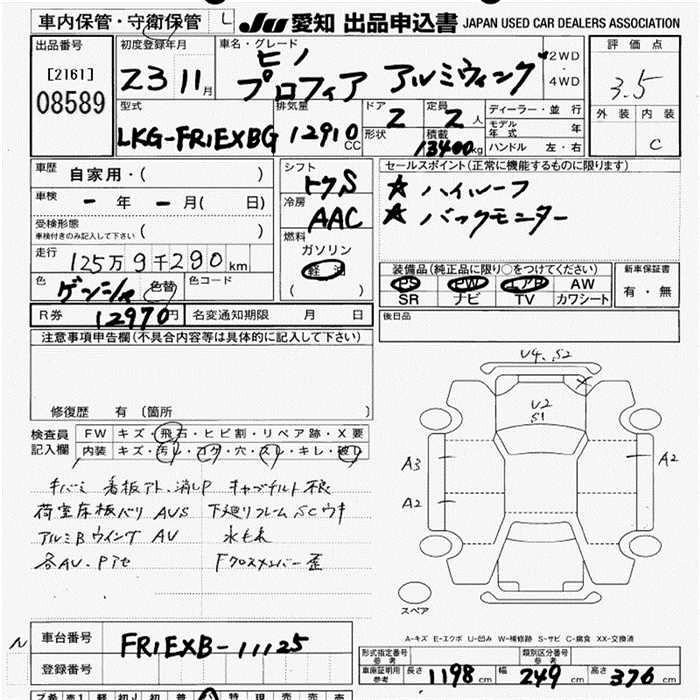 車内保管・守衛保管 L
JU 愛知 出品申込書 JAPAN USED CAR DEALERS ASSOCIATION
出品番号
[2161]
08589
初度登録年月
Z3 11月
車名・グレード
ヒノ
プロフィア アルミウィング
2WD
・
4WD
評価点
3.5
外装 内装
C
型式
LKG-FR1EXBG
排気量
12910 CC
ドア
2
形状
定員
2人
積載
13400kg
ディーラー・並行
モデル年式 年
ハンドル 左・右
車歴
自家用・( )
車検
ー年ー月( 日)
受検形態
車検付きのみ記入して下さい ( )
走行
125万9千290km
色
ゲンシャ 色替
色コード
R券
12970円
名変通知期限 月 日
シフト
トクS
冷房
AAC
燃料
ガソリン
軽油
( )
セールスポイント(正常に機能するものに限ります)
★ ハイルーフ
★ バックモニター
装備品(純正品に限り○をつけてください)
PS PW エアB AW
SR ナビ TV カワシート
新車保証書
有・無
後日品
注意事項申告欄(不具合内容等は具体的に記入して下さい)
修復歴 有〔箇所 〕
検査員記入欄
FW キズ・飛石・ヒビ割・リペア跡・X要
内装 キズ・汚レ・コゲ・穴・スレ・キレ・破レ
キバミ 看板アト、消しP キャブチルト不良
荷室床板バリ AUS 下廻りフレームSCウキ
アルミBウイング AU 水もれ
各AU・Pアセ Fクロスメンバー歪
U4、S2
U2
S1
X
A3
A2
A2
スペア
A-キズ E-エクボ U-凹み W-補修跡 S-サビ C-腐食 XX-交換済
N
車台番号
FR1EXB-11125
登録番号
形式指定番号
参考
類別区分番号
参考
車庫証明用
参考
長さ 1198 cm 幅 249 cm 高さ 376 cm